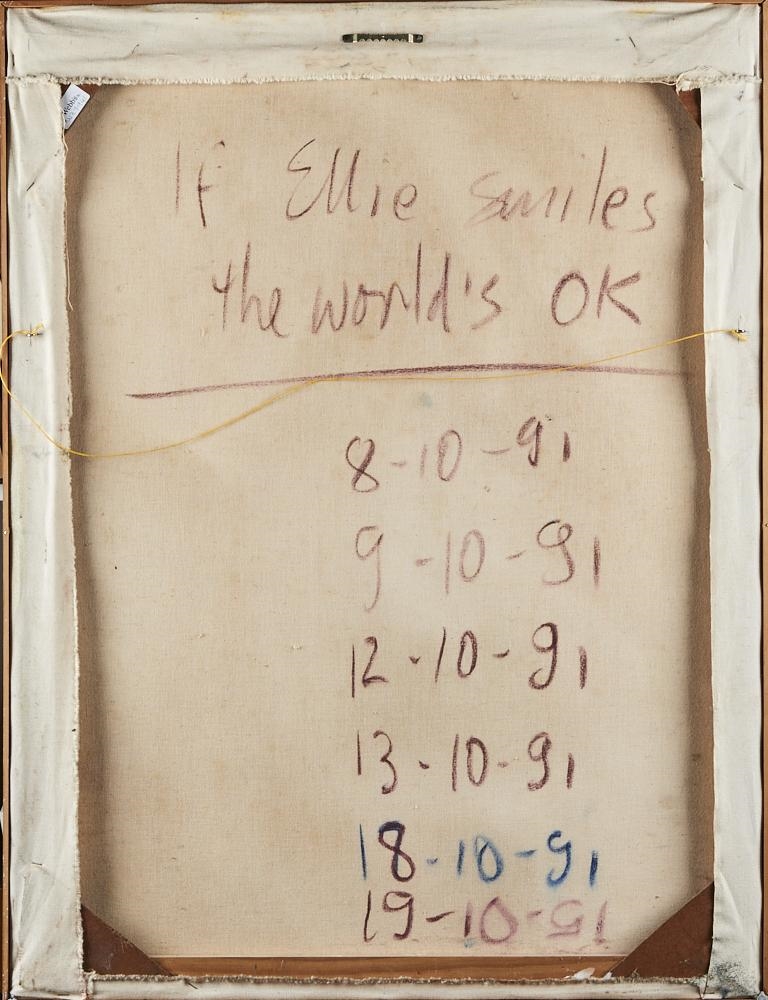 If Ellie smiles
the world's OK
8-10-91
9-10-91
12-10-91
13-10-91
18-10-91
19-10-91